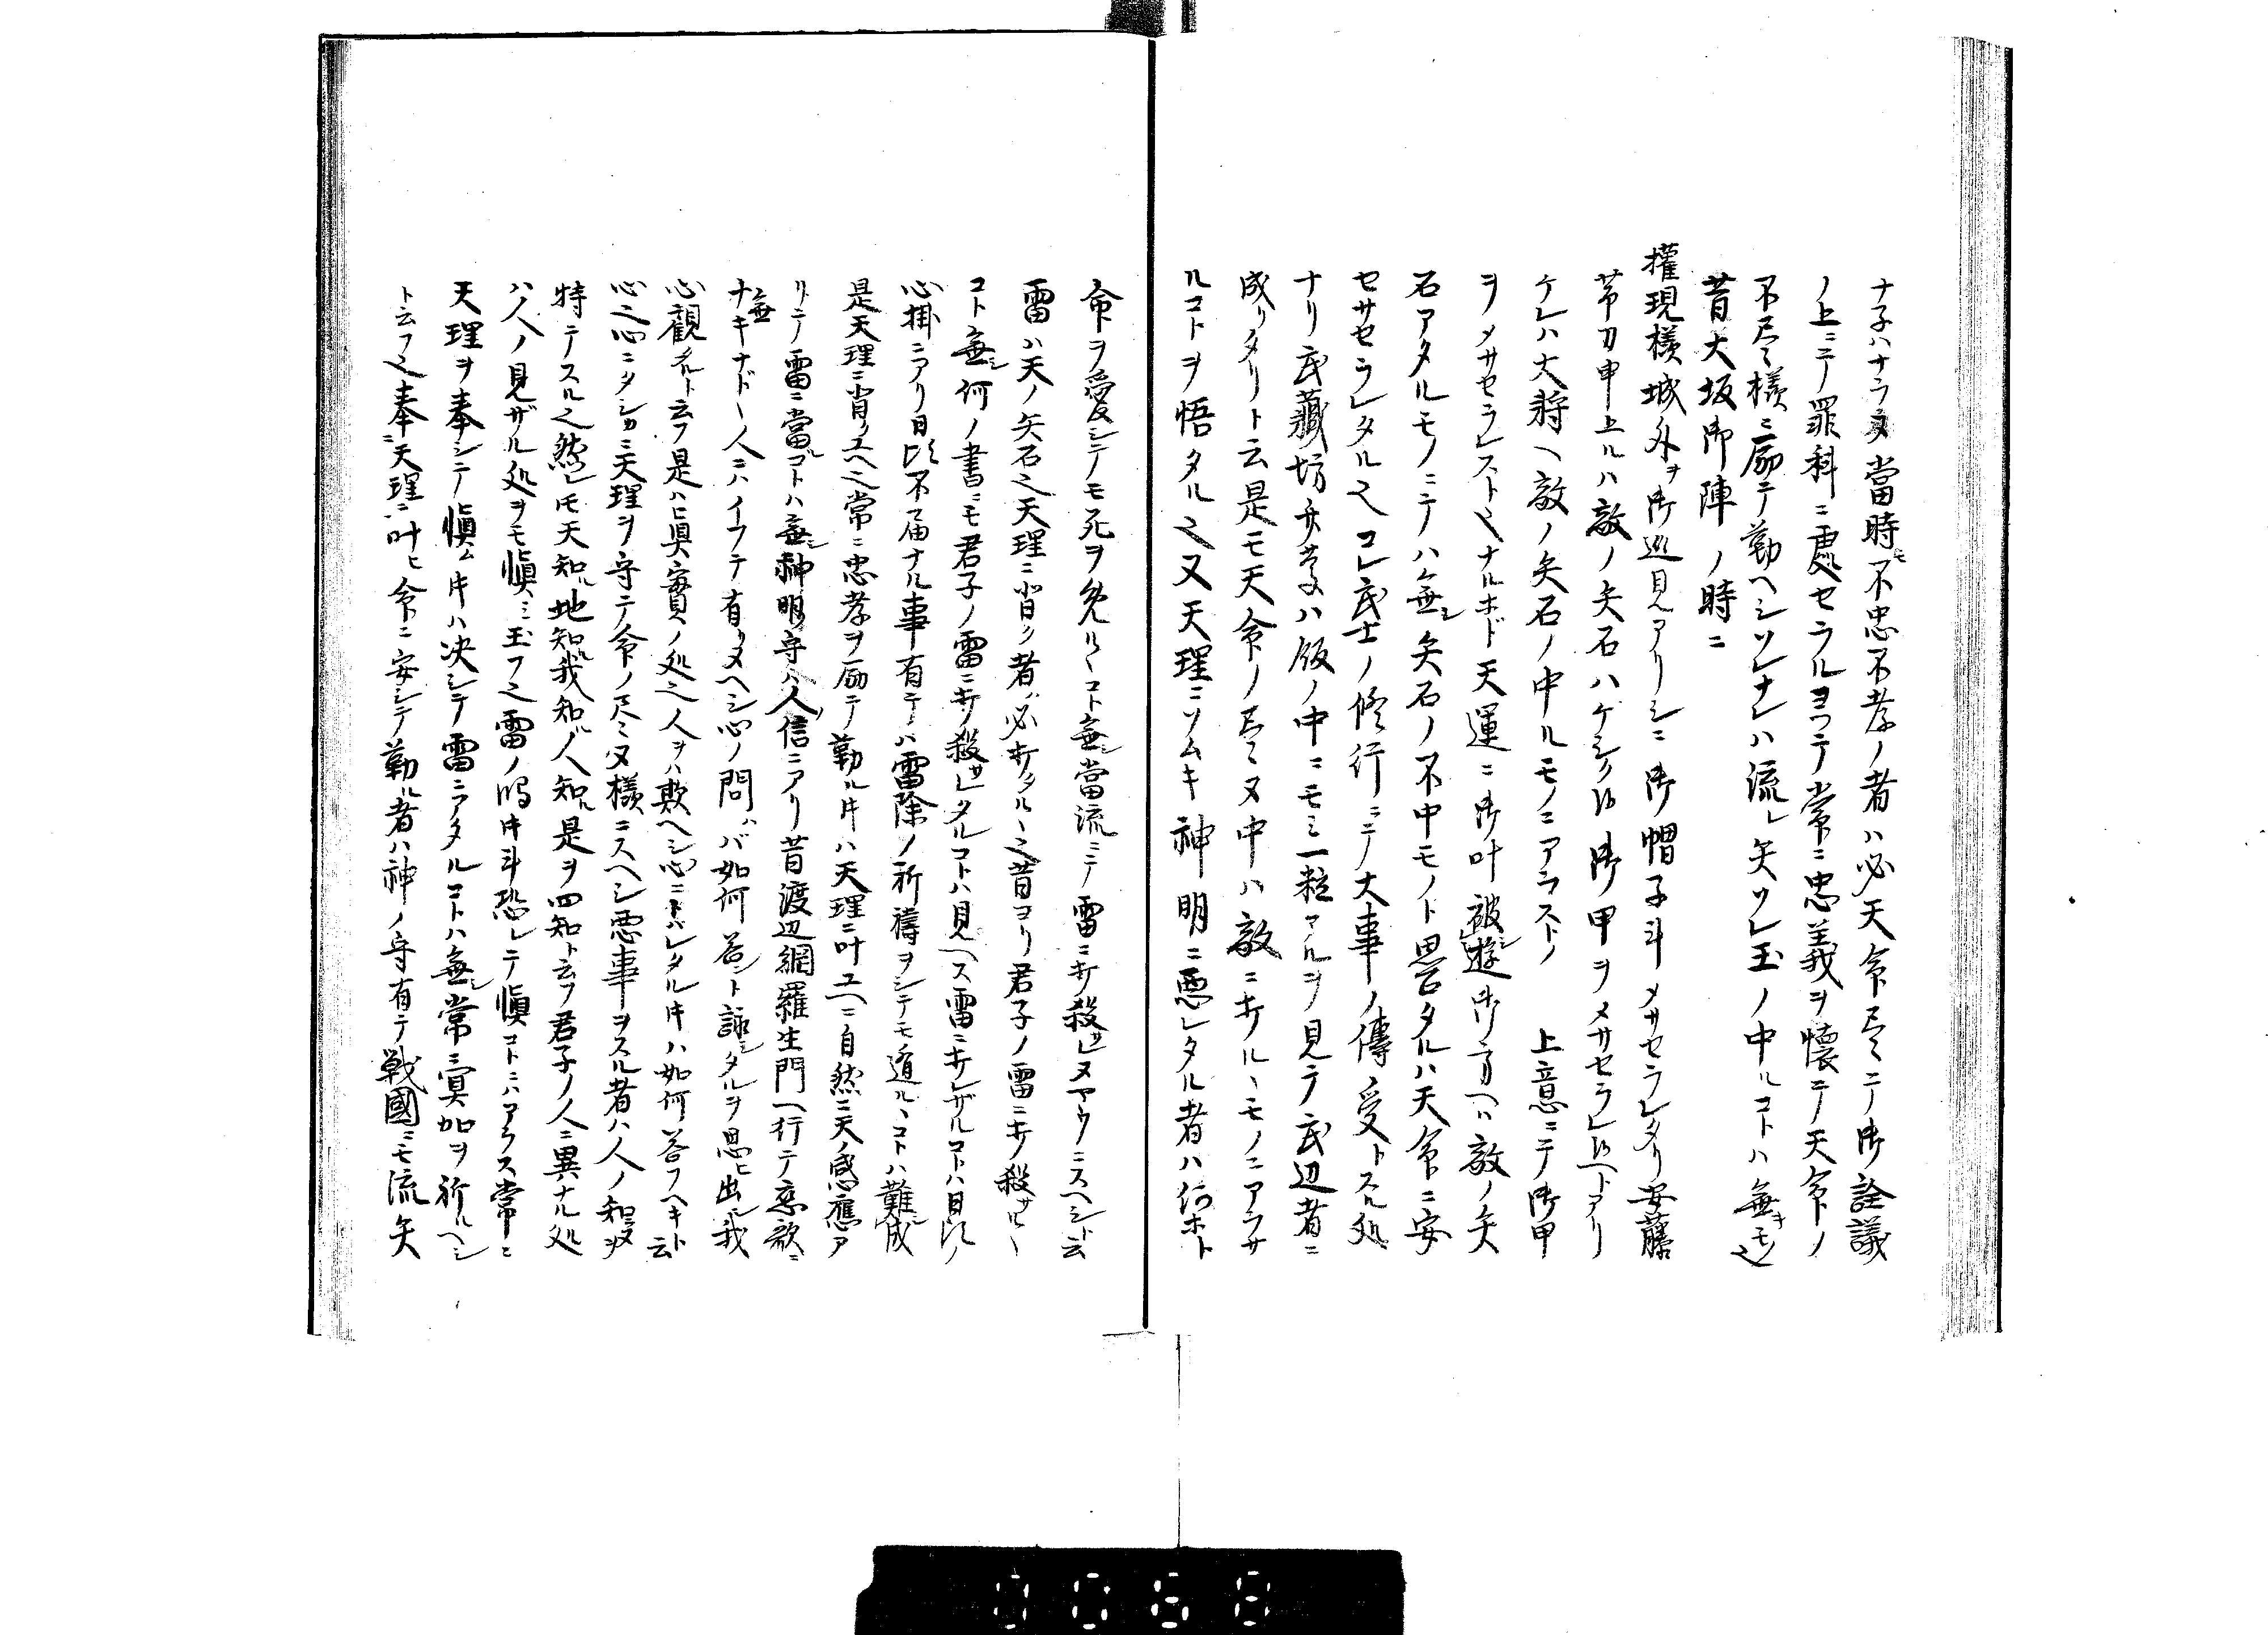 ナ子ハナラヌ當時モ不忠不孝ノ者ハ必天命尽ニテ御詮議
ノ上ニテ罪科ニ處セラルヨツテ常ニ忠義ヲ懐ニテ天命ノ
不尽様ニ励テ勤ヘシソレナレハ流レ矢ソレ玉ノ中ルコトハ無キモノ也
昔大坂御陣ノ時ニ
權現様城外ヲ御巡見アリシニ御帽子斗メサセラレタリ安藤
帯刀申上ルハ敵ノ矢石ハケシク候御甲ヲメサセラレ候ヘトアリ
ケレハ大將ヘ敵ノ矢石ノ中ルモノニアラスト 上意ニテ御甲
ヲメサセラレスト也ナルホド天運ニ御叶被遊シ御方ヘハ敵ノ矢
石アタルモノニテハ無シ矢石ノ不中モノト思召タルハ天命ニ安
セサセラレタル也コレ武士ノ修行ニテ大事ノ傳受トスル処
ナリ武藏坊弁慶ハ飯ノ中ニモミ一粒アルヲ見テ武辺者ニ
成リタリト云是モ天命ノ尽ヌ中ハ敵ニ打ルヽモノニアラサ
ルコトヲ悟タル也又天理ニソムキ神明ニ悪レタル者ハ何ホト
命ヲ愛シテモ死ヲ免ルヽコト無シ當流ニテ雷ニ打殺サレヌヤウニスヘシト云
雷ハ天ノ矢石也天理ニ背ク者ハ必打タルヽ也昔ヨリ君子ノ雷ニ打殺サルヽ
コト無シ何ノ書ニモ君子ノ雷ニ打殺サレタルコトハ見ヘス雷ニ打レザルコトハ日比ノ
心掛ニアリ日比不届ナル事有テハ雷除ノ祈禱ヲシテモ遁ルヽコトハ難シ成
是天理ニ背クユヘ也常ニ忠孝ヲ励テ勤ル片ハ天理ニ叶ユヘニ自然ニ天ノ感應ア
リテ雷ニ當ルコトハ無シ神明ノ守ハ人ノ信ニアリ昔渡辺綱羅生門ヘ行テ恋歌ニ
無ナキナドヽ人ニハイフテ有リヌヘシ心ノ問ハバ如何答ント詠シタルヲ思ヒ出シ我
心觀ズルト云フ是ハヒ真實ノ処也人ヲハ欺ヘシ心ニトハレタル片ハ如何答フヘキト云
心也心ニタシカニ天理ヲ守テ命ノ尽ヌ様ニスヘシ悪事ヲスル者ハ人ノ知ヌヲ
特テスル也然レ𪜈天知ル地知ル我知ル人知ル是ヲ四知ト云フ君子ノ人ニ異ナル処
ハ人ノ見ザル処ヲモ愼ミ玉フ也雷ノ鳴片斗恐レテ愼コトニハアラス常ニ
天理ヲ奉シテ愼ム片ハ决シテ雷ニアタルコトハ無シ常ニ冥加ヲ祈ルヘシ
ト云フ也奉シ天理ニ叶ヒ命ニ安シテ勤ル者ハ神ノ守有テ戰國ニモ流矢